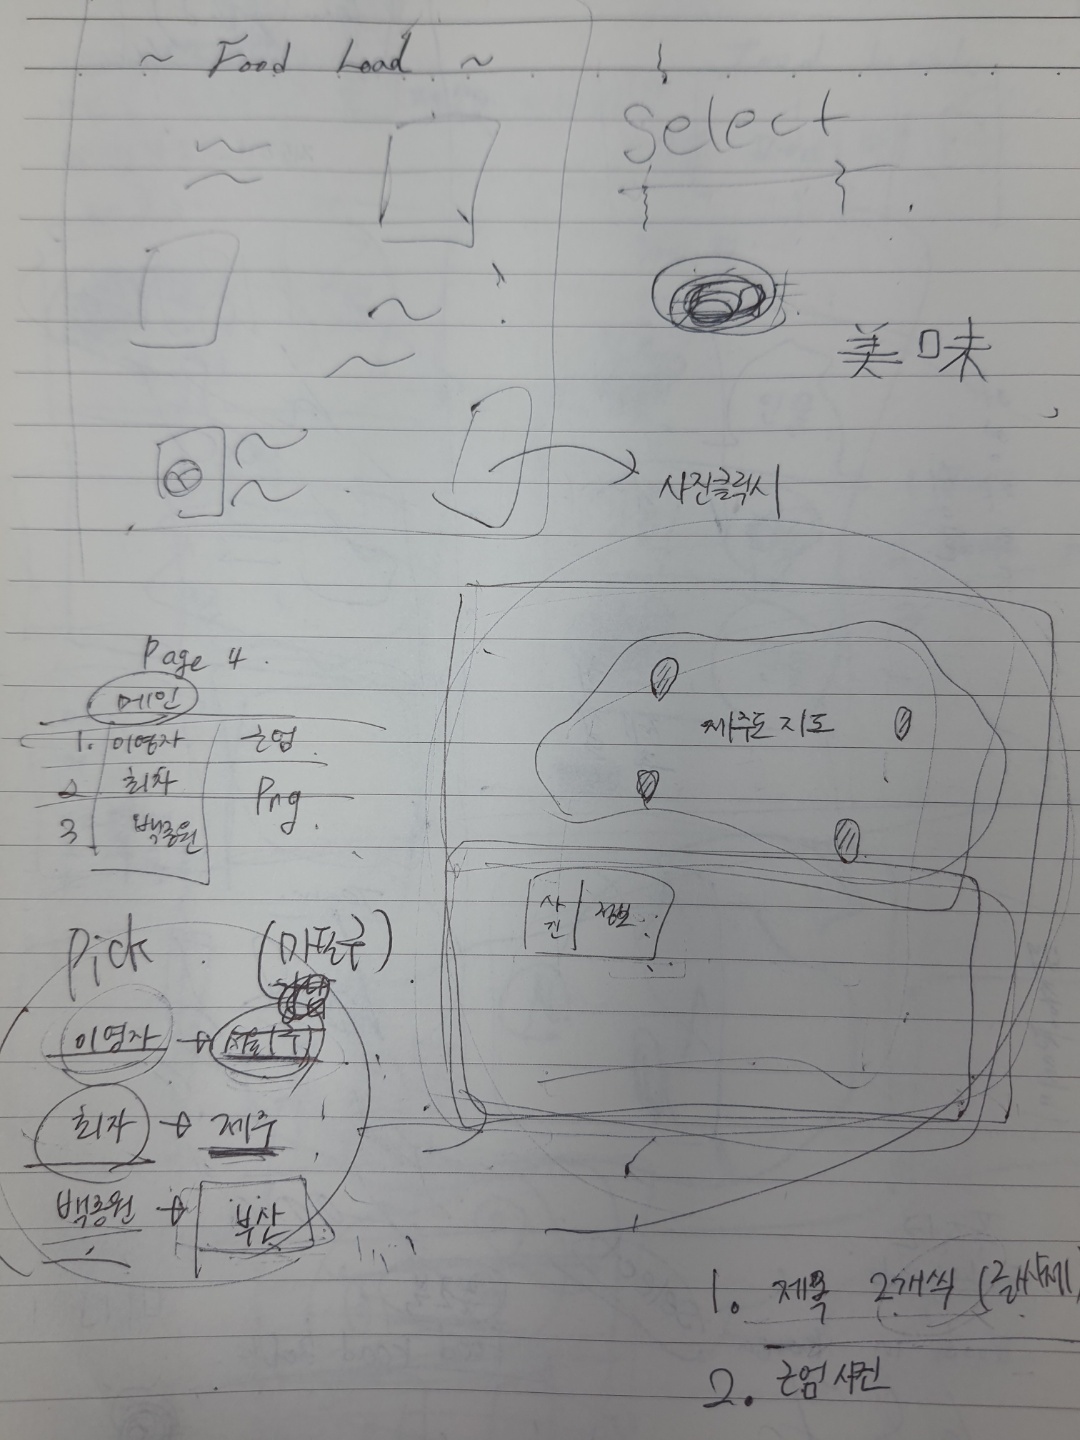 ~ Food Load ~
Select
美味
사진클릭시
Page 4.
메인
1. 이영자 근엄
2 최자 Png
3 백종원
제주도 지도
사진 정보
Pick (미팔구)
이영자 → 서울(구)
최자 → 제주
백종원 → 부산
1. 제목 2개씩
2. 근엄 사진